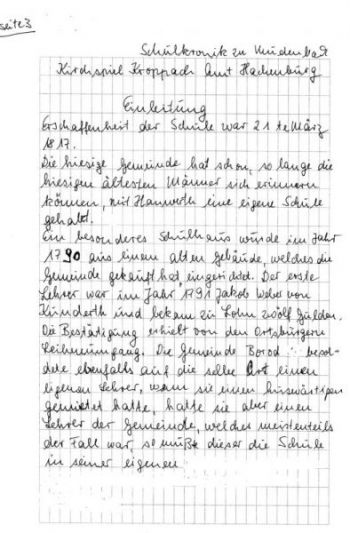 Seite 3
Schulkronik zu Mudenbach
Kirchspiel Kroppach Amt Hachenburg
Einleitung
Erschaffenheit der Schule war 21te März
1817.
Die hiesige Gemeinde hat schon, so lange die
hiesigen ältesten Männer sich erinnern
können, mit Hanwerth eine eigene Schule
gehabt.
Ein besonderes Schulhaus wurde im Jahr
1790 aus einem alten Gebäude, welches die
Gemeinde gekauft hat, eingerichtet. Der erste
Lehrer war im Jahr 1791 Jakob Weber von
Kunderth und bekam zu Lohn zwölf Gulden.
Die Bestätigung erhielt von den Ortsbürgern
Reihenumgang. Die Gemeinde Borod besol-
dete ebenfalls auf die selbe Art einen
eigenen Lehrer, wann sie einen auswärtigen
gemietet hatte, hatte sie aber einen
Lehrer der Gemeinde, welches meistenteils
der Fall war, so mußte dieser die Schule
in seiner eigenen